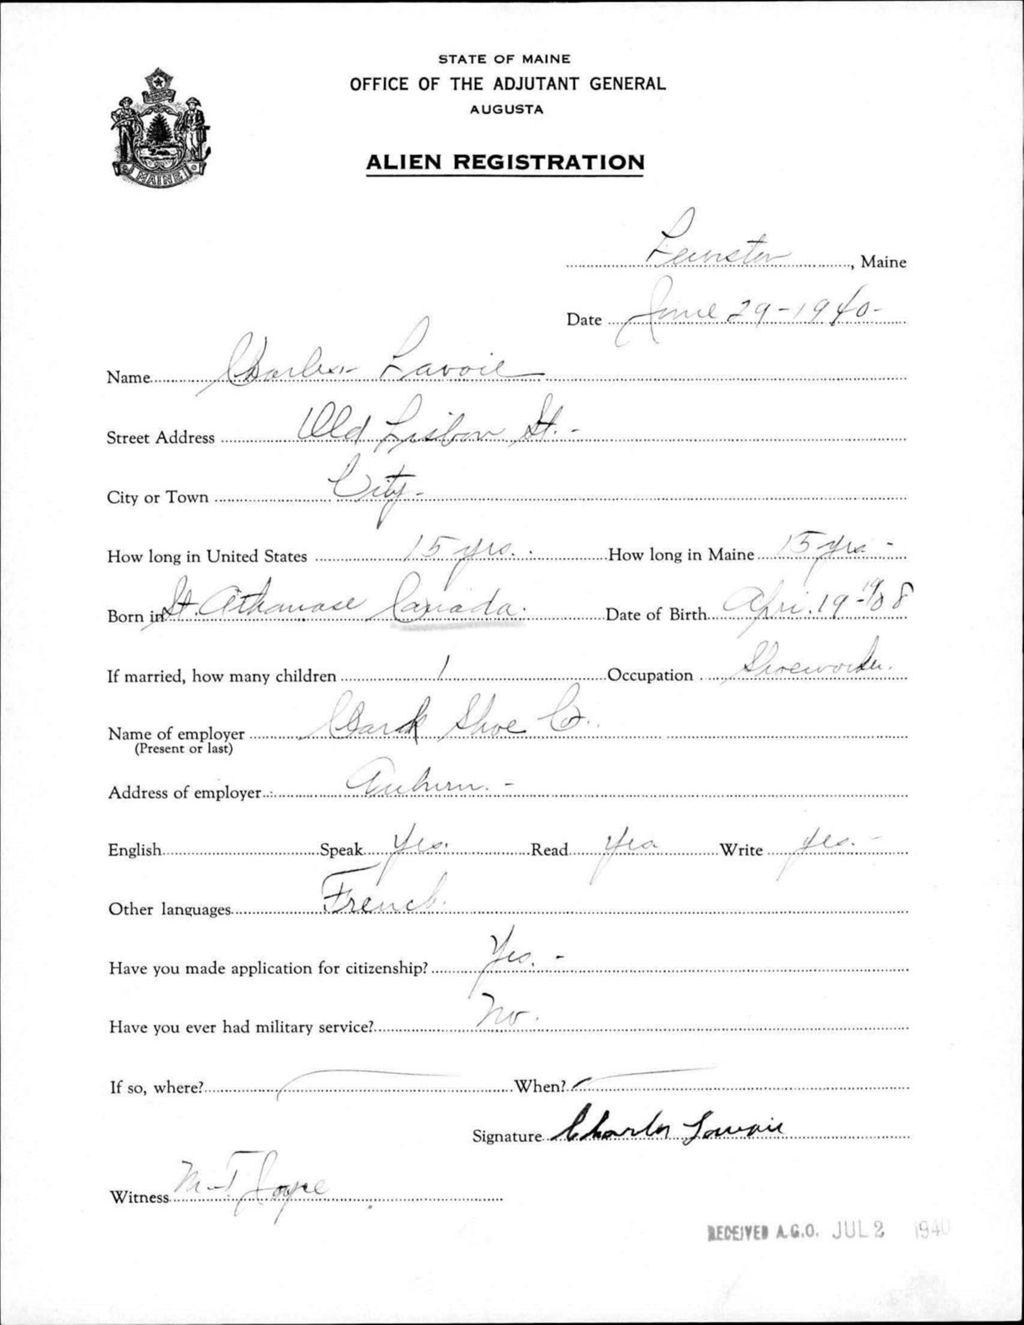 STATE OF MAINE
OFFICE OF THE ADJUTANT GENERAL
AUGUSTA
ALIEN REGISTRATION
MAINE
Lewiston, Maine
Date June 29-1940-
Name Charles Lavoie
Street Address Old Lisbon St.-
City or Town City-
How long in United States 15 yrs. How long in Maine 15 yrs -
Born in St. Athanase Canada. Date of Birth Apri. 19-1908
If married, how many children 1 Occupation Shoeworker.
Name of employer Clark Shoe Co.
(Present or last)
Address of employer Auburn.-
English Speak Yes. Read Yes Write Yes.-
Other languages French.
Have you made application for citizenship? Yes. -
Have you ever had military service? No.
If so, where? When?
Signature Charles Lavoie
Witness M-T Joyce
RECEIVED A.G.O. JUL 2 1940